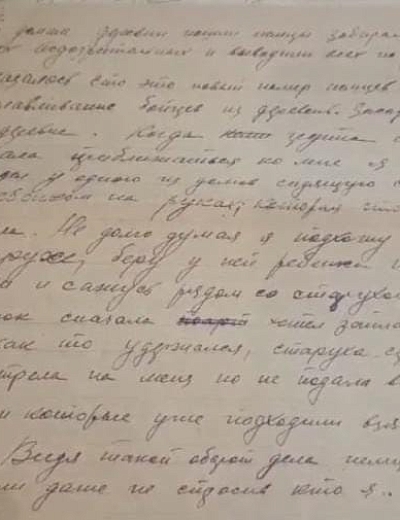 домам деревни пошли немцы забирал
подозрительных и выводили всех по
казалось что это новый номер немцев
лавливание бойцев из деревень. Забир
деревне. Когда группа
ала приближаться ко мне я
дел у одного из домов сидящую с
ребёнком на руках, которая
ла. Не долго думая я подхожу
рухе, беру у ней ребенка
а и сажусь рядом со старухой
ок сначала хотел запла
как то удержался, старуха
трела на меня но не подала в
и которые уже подходили
Видя такой оборот дела немц
ли даже не спросив кто я..